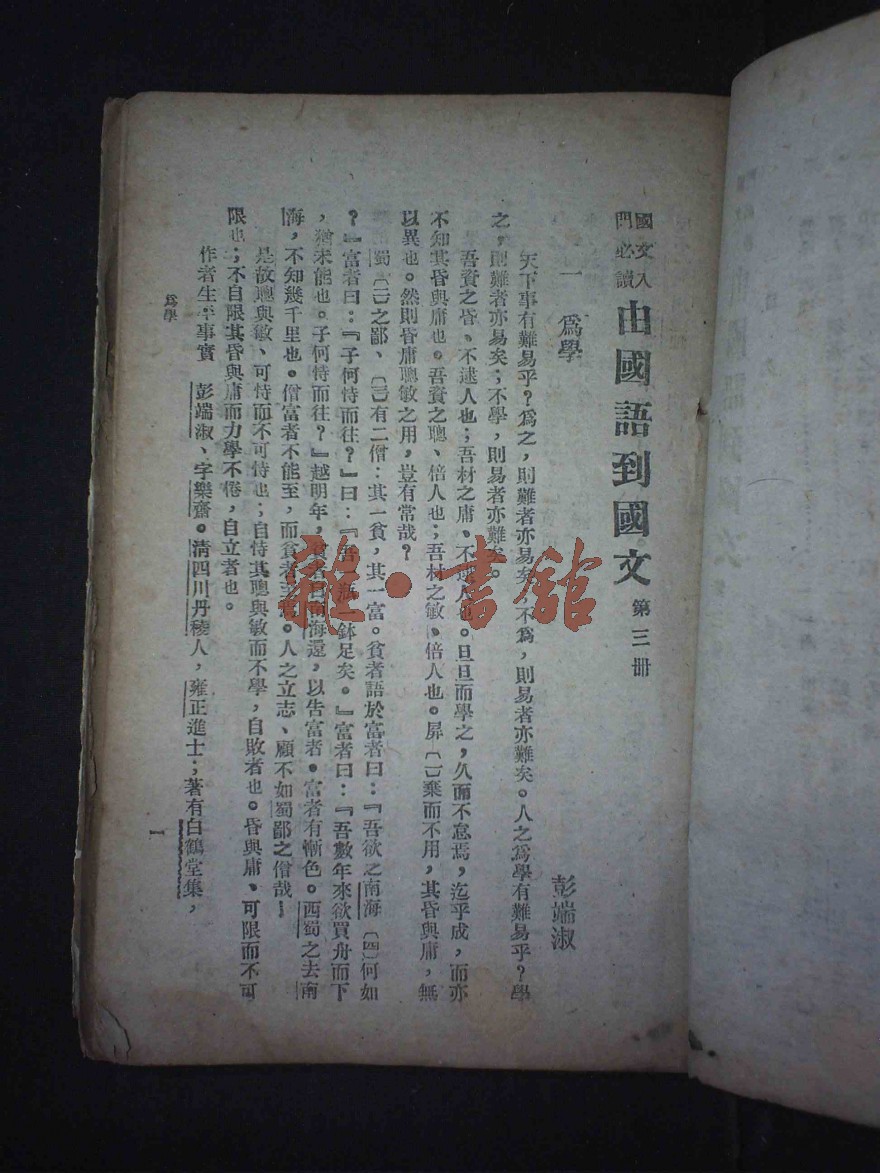 國文入門必讀 由國語到國文 第三冊
一 爲學
彭端淑
天下事有難易乎?爲之,則難者亦易矣;不爲,則易者亦難矣。人之爲學有難易乎?學
之,則難者亦易矣;不學,則易者亦難矣。
吾資之昏、不逮人也;吾材之庸、不逮人也。旦旦而學之,久而不怠焉,迄乎成,而亦
不知其昏與庸也。吾資之聰、倍人也;吾材之敏、倍人也。屏〔一〕棄而不用,其昏與庸,無
以異也。然則昏庸聰敏之用,豈有常哉?
蜀〔二〕之鄙、〔三〕有二僧:其一貧,其一富。貧者語於富者曰:『吾欲之南海〔四〕何如
?』富者曰:『子何恃而往?』曰:『吾一瓶一鉢足矣。』富者曰:『吾數年來欲買舟而下
,猶未能也。子何恃而往?』越明年,貧者自南海還,以告富者。富者有慚色。西蜀之去南
海,不知幾千里也。僧富者不能至,而貧者至焉。人之立志、顧不如蜀鄙之僧哉!
是故聰與敏、可恃而不可恃也;自恃其聰與敏而不學,自敗者也。昏與庸、可限而不可
限也;不自限其昏與庸而力學不倦,自立者也。
作者生平事實 彭端淑、字樂齋。清四川丹稜人,雍正進士;著有白鶴堂集,
爲學
一
雜·書館